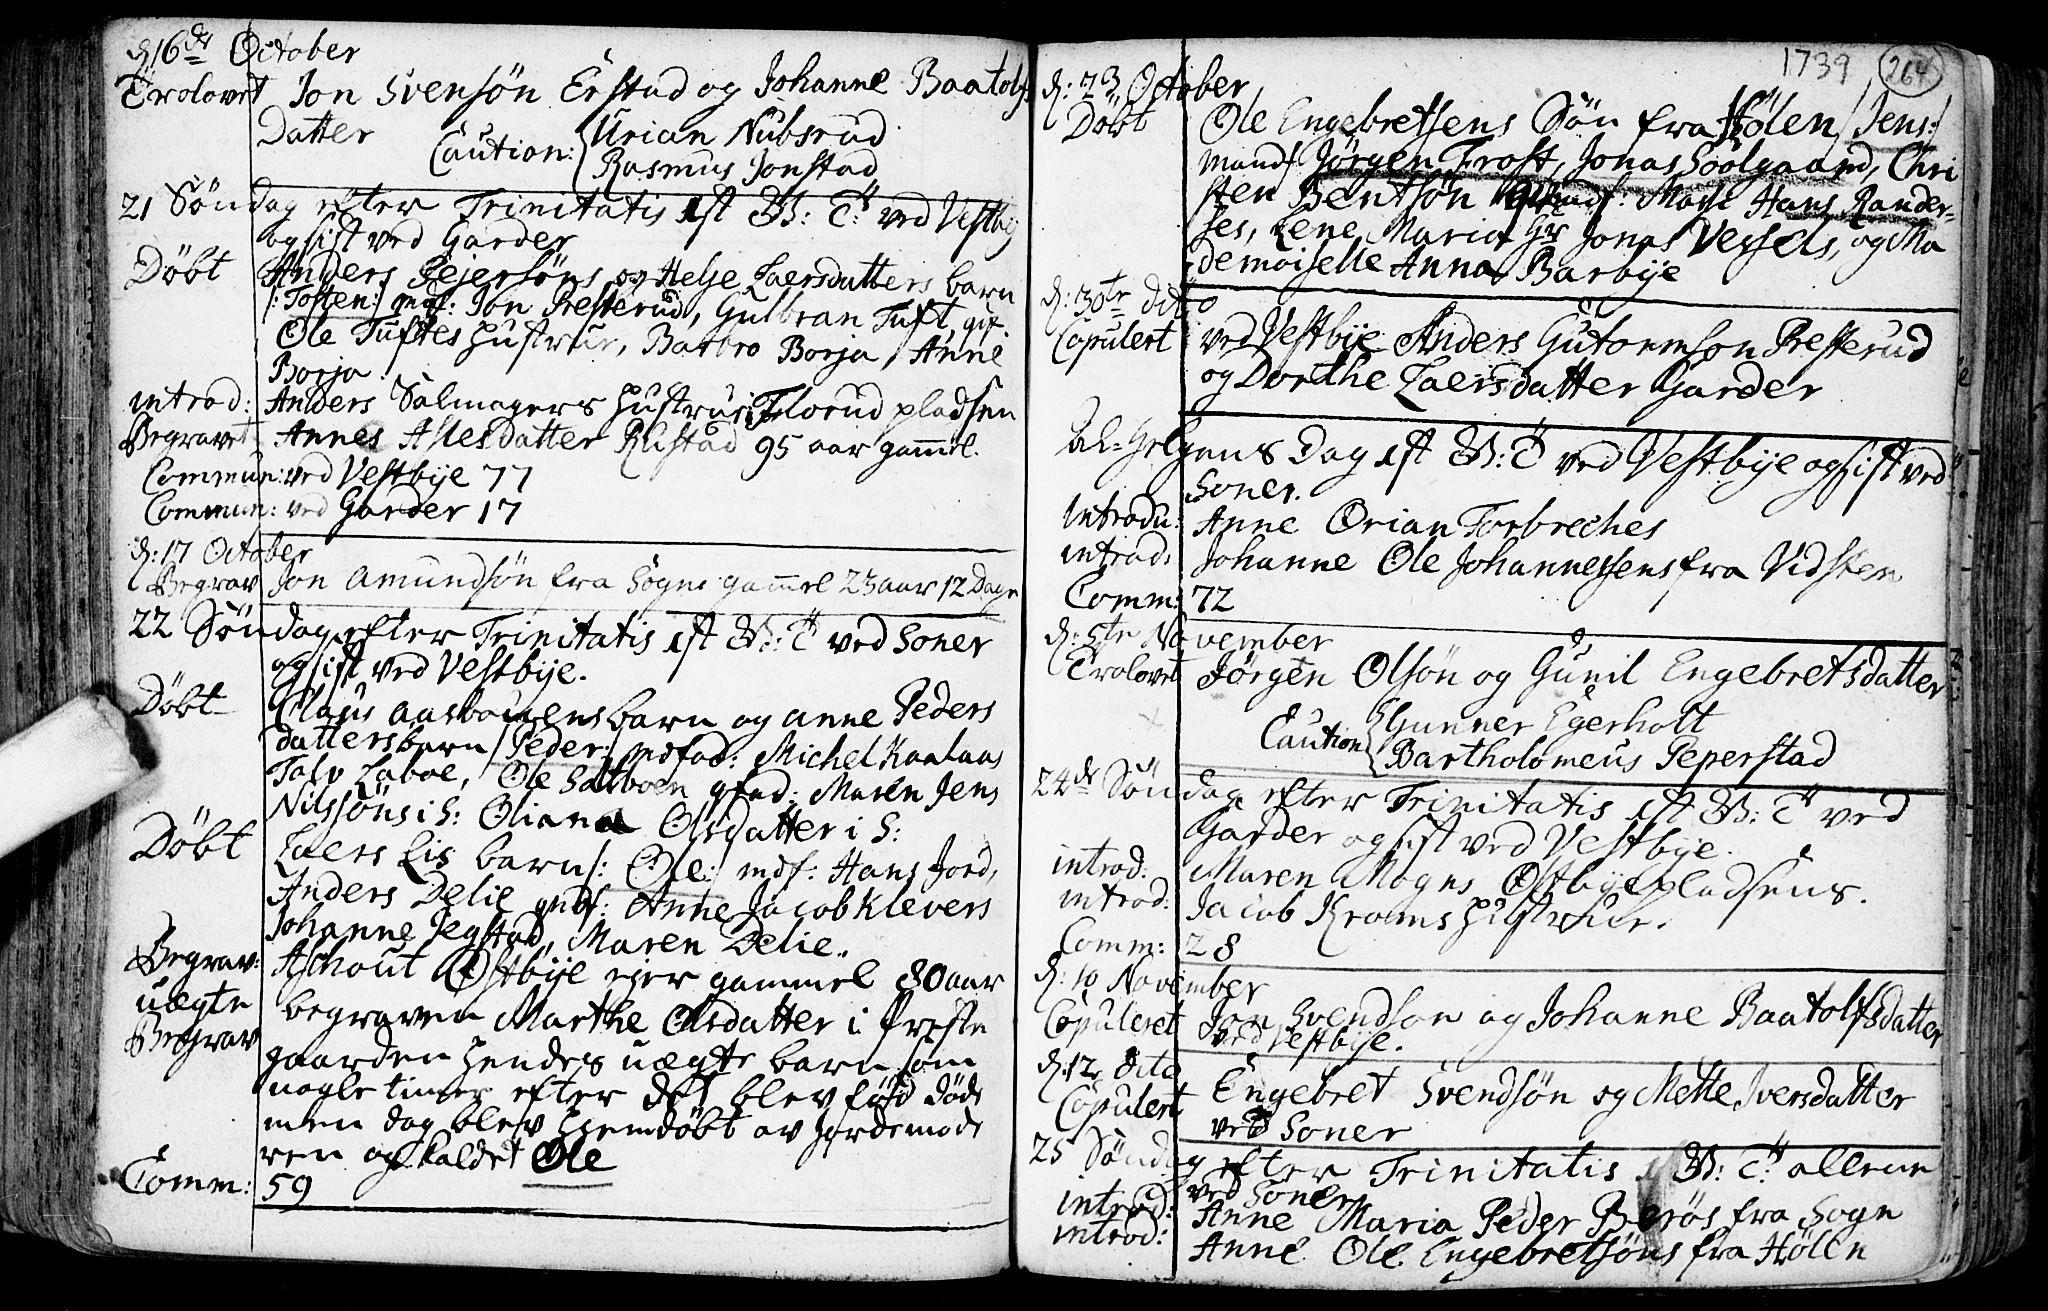 d 16de October
Trolovet Jon Svensøn Erstad og Johanne Baatolfs
Datter Caution: Urian Nubsrud
Rasmus Jonstad
21 Søndag efter Trinitatis 1st B: T: ved Vestby
og sist ved Garder
Døbt Anders Pejersøns og Helje Laersdatters barn
/: Tosten :/ mgf: Jon Presterud, Gulbran Tuft, qif.
Ole Tuftes Hustrue, Barbro Borja, Anne
Borja
introd: Anders Salmagers Hustrue i Florud pladsen
Begravet Annes Aslesdatter Rustad 95 aar gam̄el.
Commun: ved Vestbye 77
Commun: ved Garder 17
d: 17 October
Begrav Jon Amundsøn fra Sogne gam̄el 23 aar 12 Dage
22 Søndag efter Trinitatis 1st B: T: ved Soner
og sist ved Vestbye.
Døbt Claus Aasboerens barn og Anne Peders
dattersbarn /Peder:/ mdfad: Michel Kaalaas
Talv Laboe, Ole Salboen qfad: Maren Jens
Nilssøns i S: Oliana Olsdatter i S:
Døbt Laers Lis barn /: Ole :/ mdf: Hans Jord,
Anders Delie qvdf: Anne Jacob Klevers
Johanne Jegstad, Maren Delie.
Begrav: Ashout Østbye ejer gammel 80 aar
uægte begraven Marthe Olsdatter i Præste
Begrav gaarden Hendes uægte barn som
nogle timer efter det blev fød døde
men dog blev Hjemdøbt av Jordemode
ren og kaldet Ole
Comm: 59
1739 264
d: 23 October
Døbt Ole Engebretsens Søn fra Hølen /Jens:/
mandf. Jørgen Frost, Jonas Soolgaard, Chri
sten Bentsøn qvindf: Madme Hans Rander-
ses, Lene Maria Hr Jonas Vessels, og Ma
demoiselle Anna Barbye
d: 30te dito
Copulert ved Vestbye Anders Gutormson Presterud
og Dorthe Laersdatter Garder
Al-Helgens Dag 1st B: T ved Vestbye og sist ved
Soner.
Introdu: Anne Orian Torbreches
introd: Johanne Ole Johannessens fra Vidsten
Comm: 72
d: 5te November
Trolovet Jørgen Olsøn og Gunil Engebretsdatter
Caution Gunner Egerholt
Bartholomeus Peperstad
24de Søndag efter Trinitatis 1st B: T: ved
Garder og sist ved Vestbye.
introd: Maren Mogns Østbyepladsens.
introd: Jacob Kroms Hustrue.
Comm: 28
d: 10 November
Copuleret Jon Svendson og Johanne Baatolfsdatter
ved Vestbye.
d: 12 dito
Copulert Engebret Svendsøn og Mette Iversdatter
ved Soner
25 Søndag efter Trinitatis 1 B: T: allene
ved Soner
introd: Anne Maria Peder Berøs fra Sogn
introd: Anne Ole Engebretsøns fra Hølen